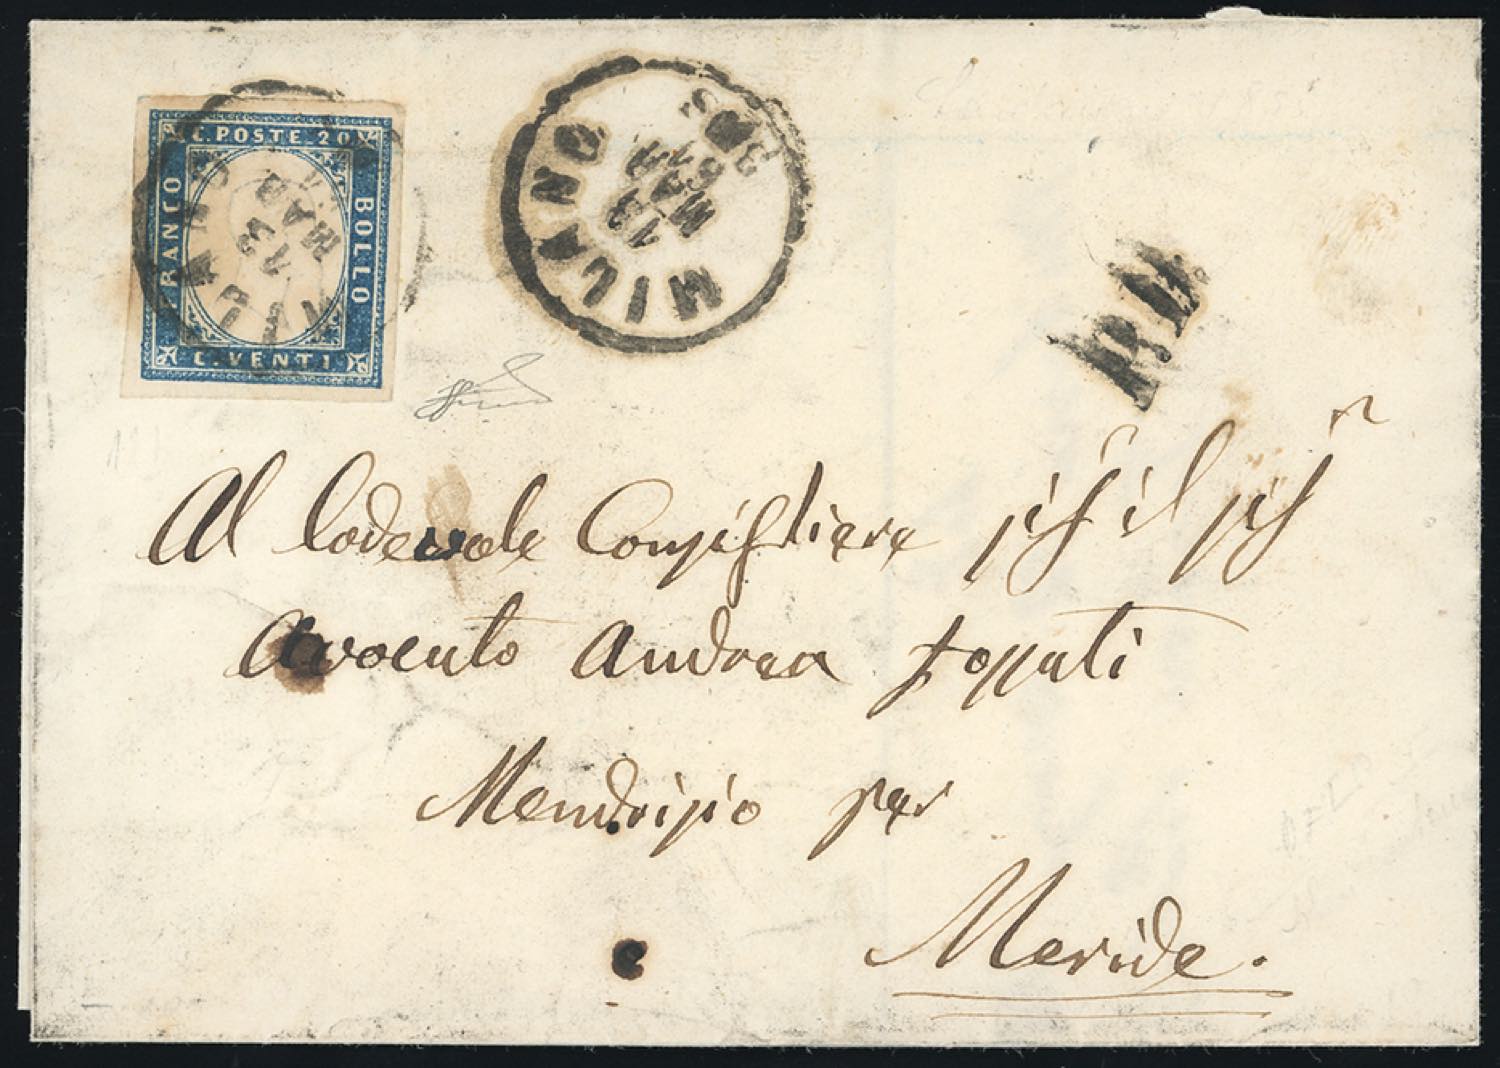 C. POSTE 20
FRANCO
BOLLO
C. VENTI
MILANO
13
MAR
MILANO
13
MAR
P.D.
Al lodevole Consigliere
Avvocato Andrea
Mendrisio per
Meride.